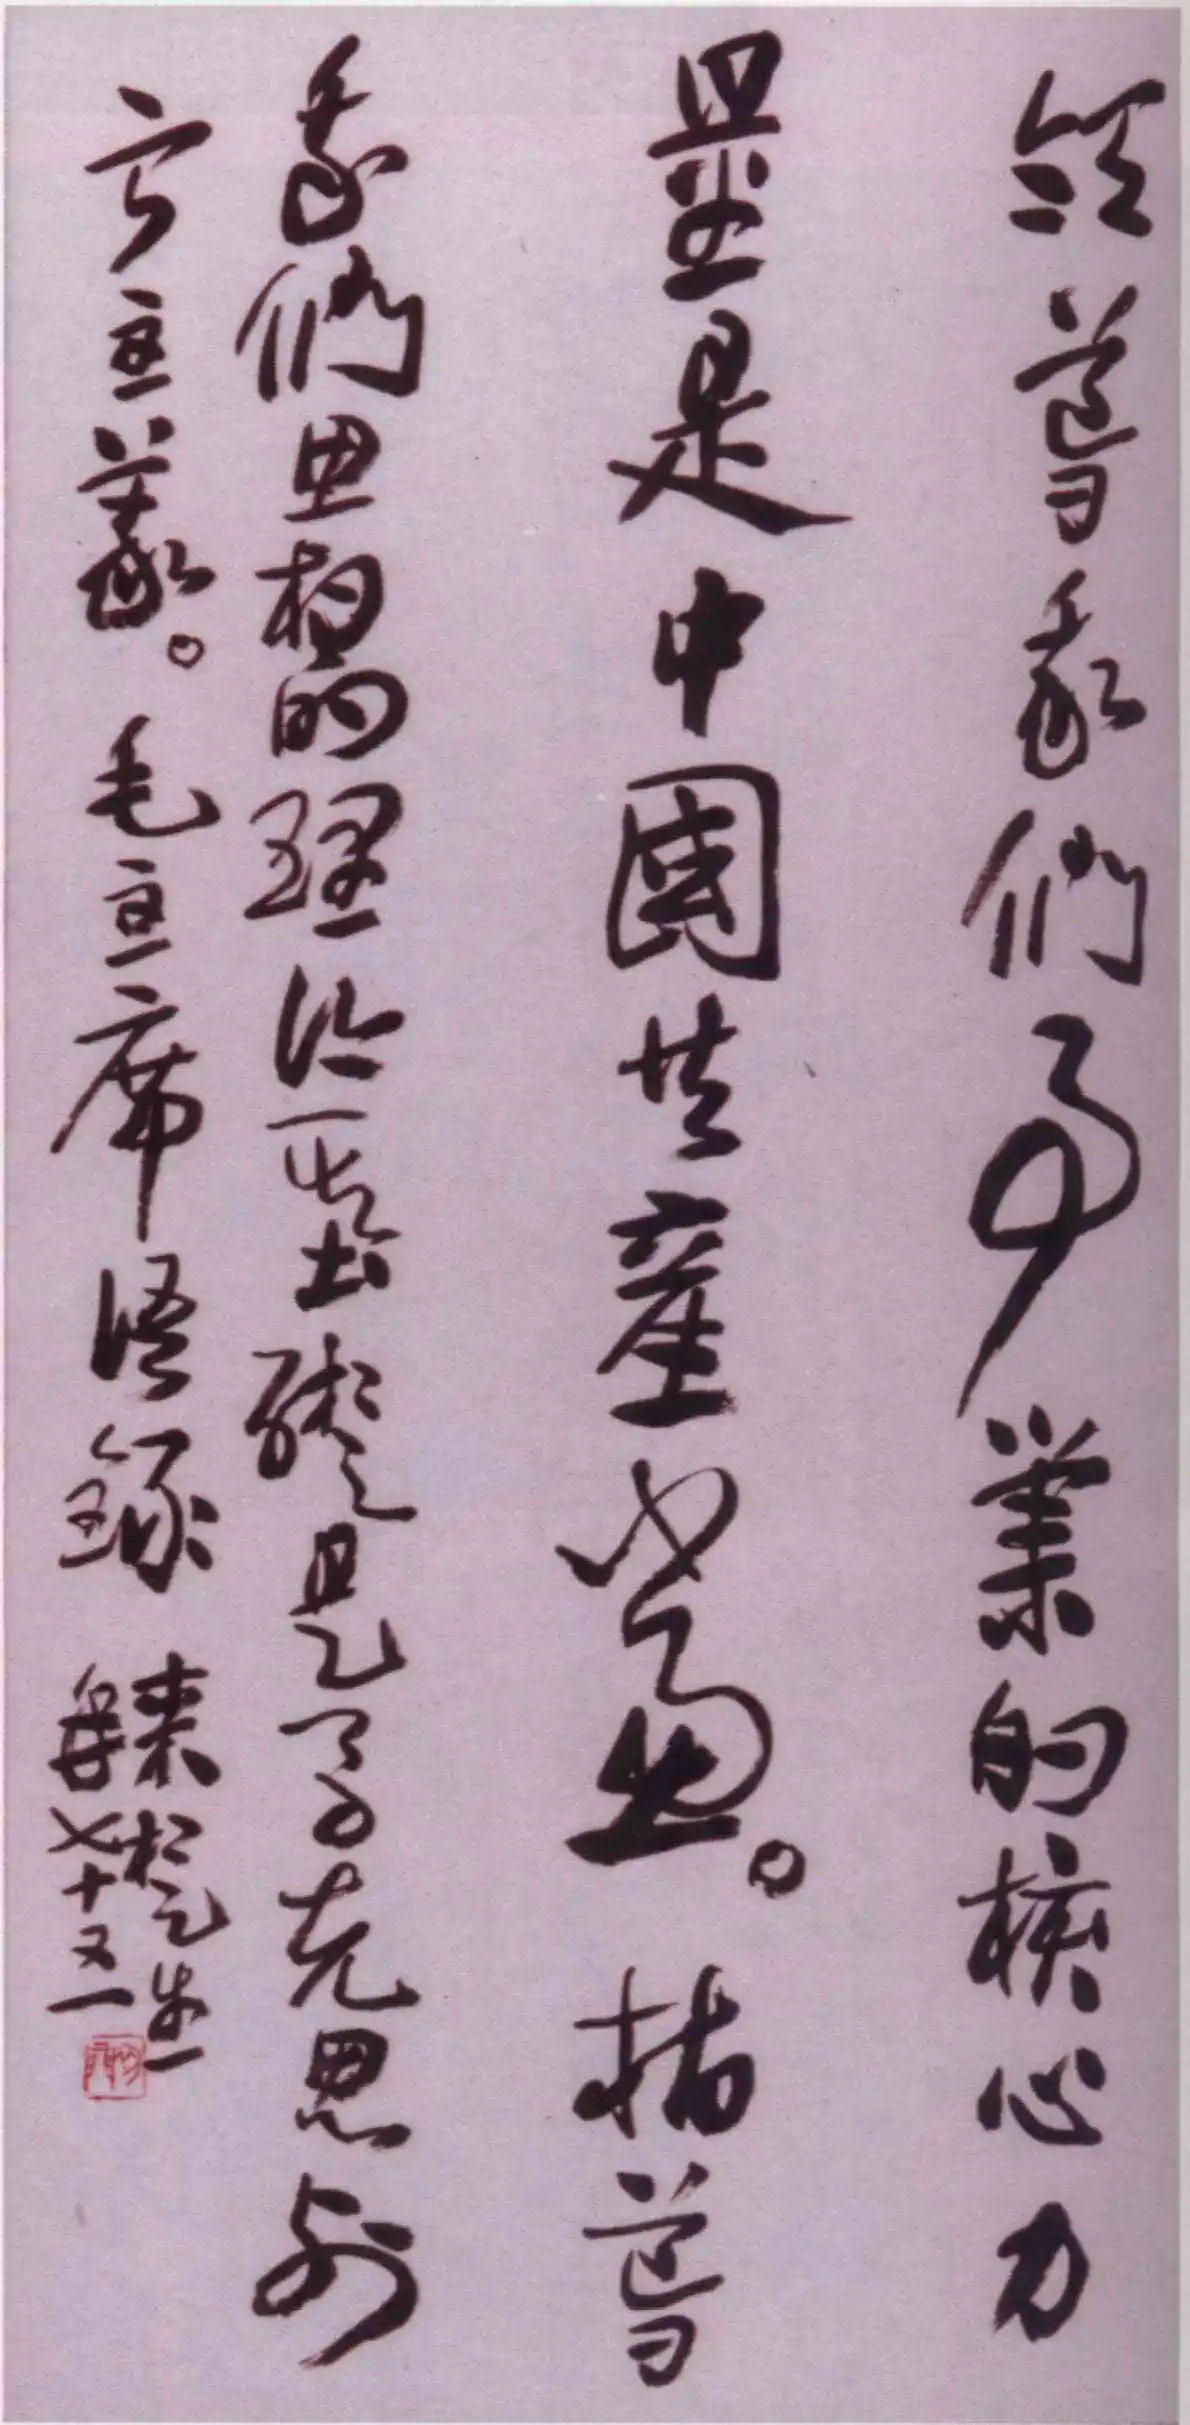 領導我們事業的核心力
量是中國共產黨。指導
我們思想的理論基礎是馬克思列
宁主義。毛主席語錄
楚生
年七十又一